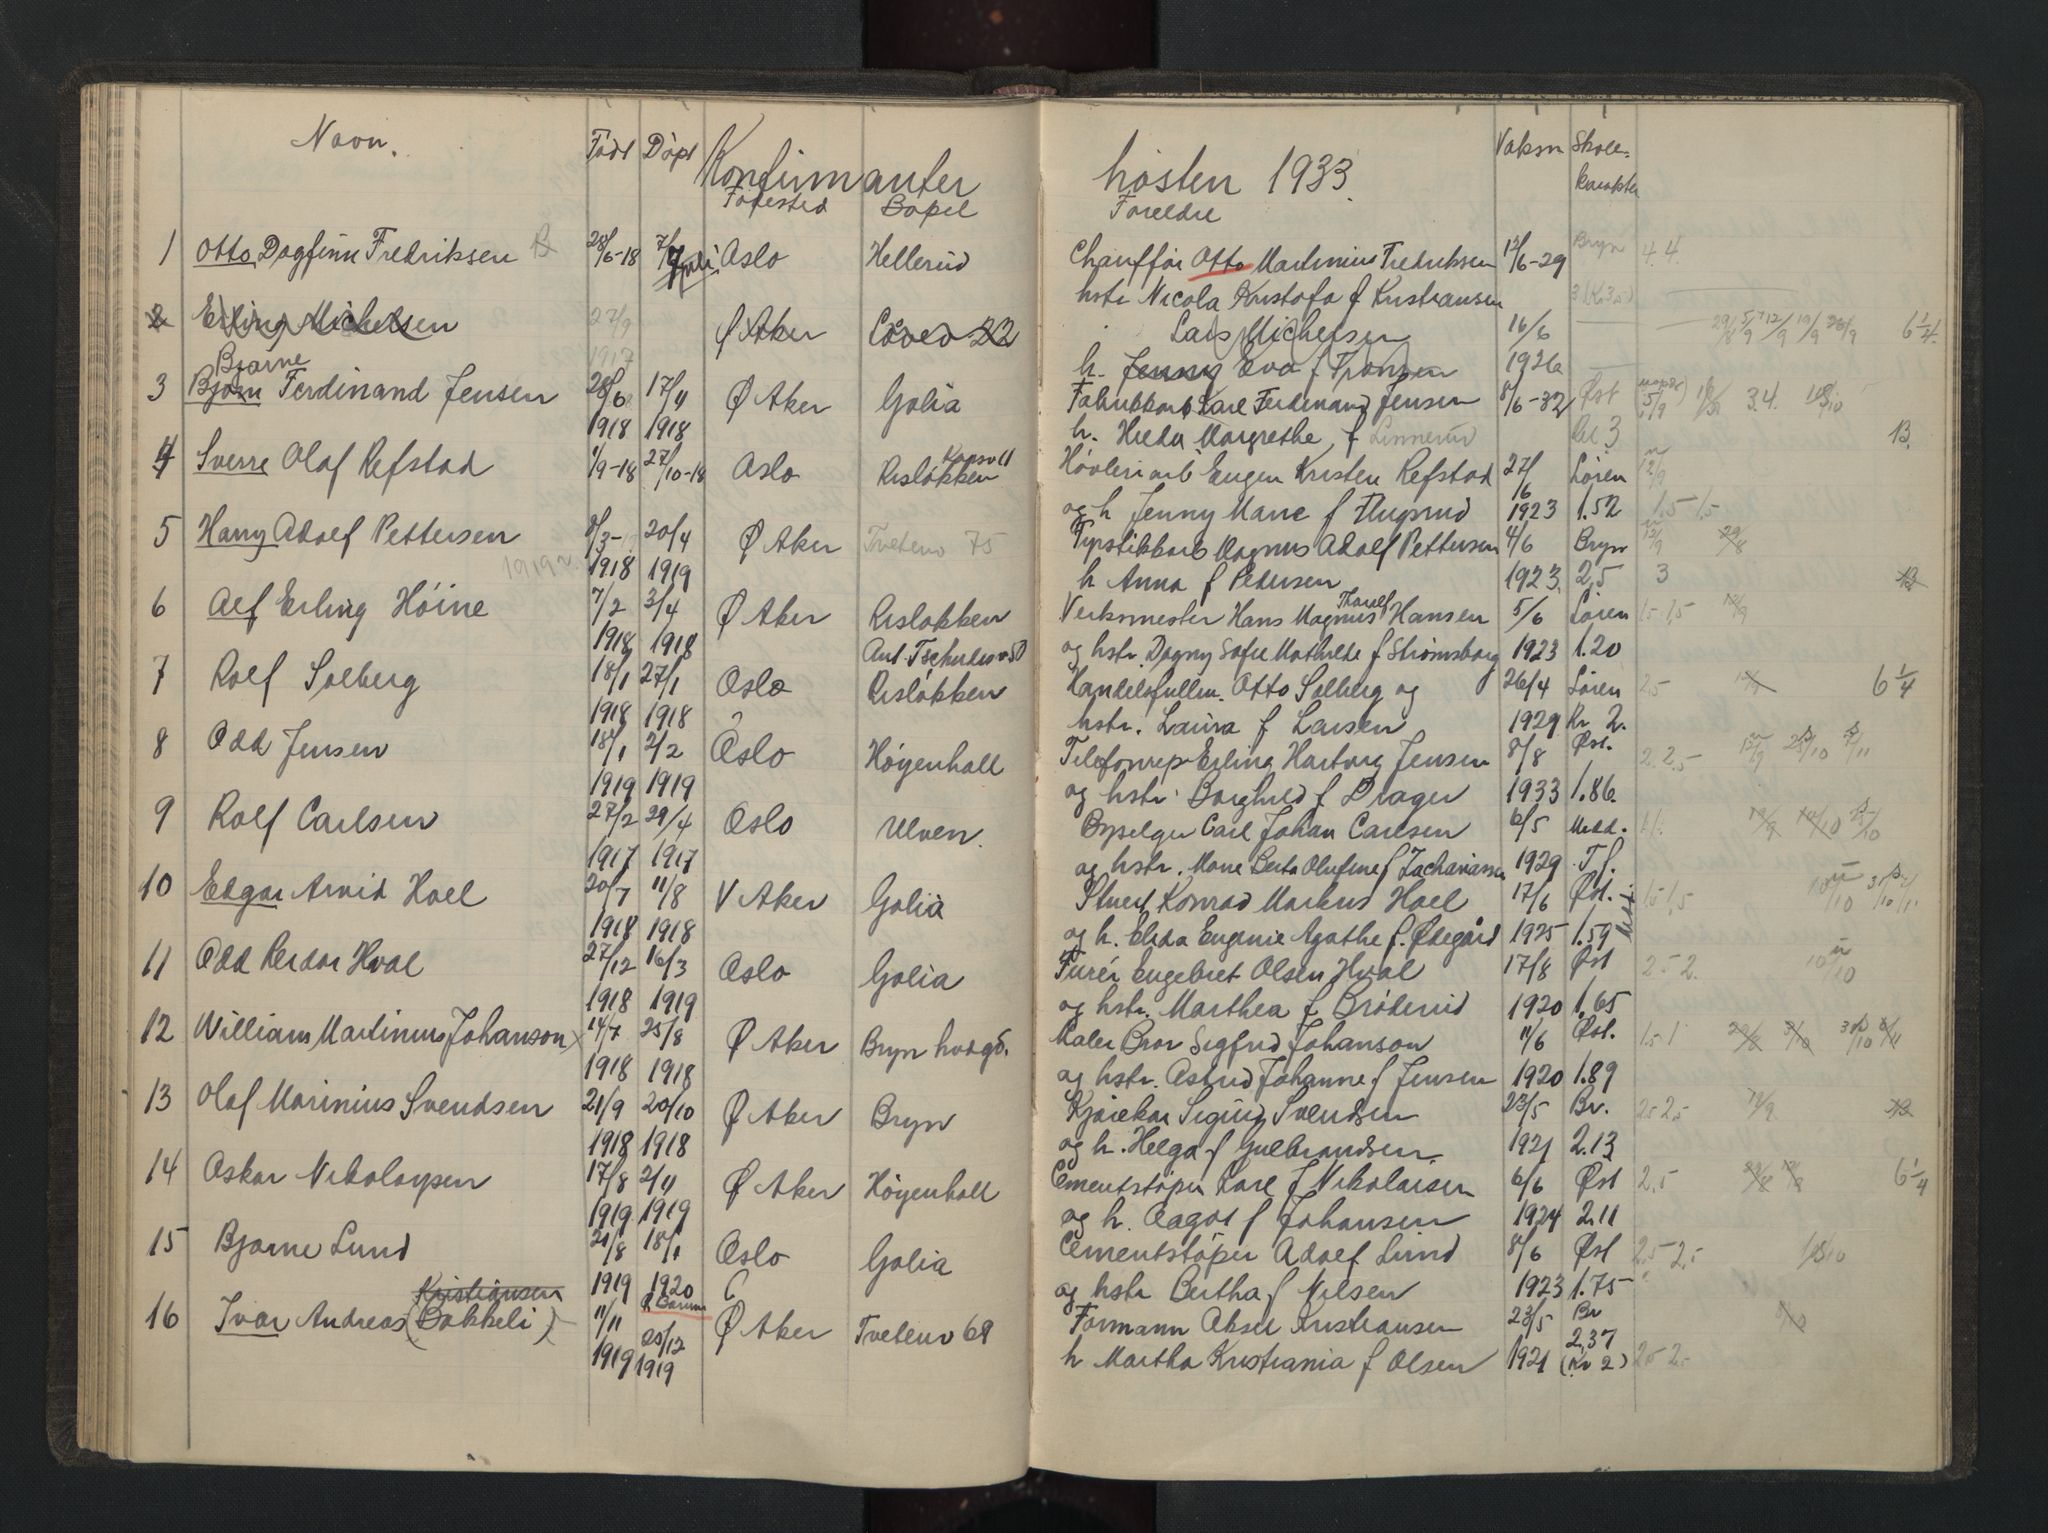 Navn. Født Døpt Konfirmanter høsten 1933. Vaksin Skole-
Fødested Bopel Foreldre karakter
1 Otto Dagfinn Fredriksen 28/6-18 7/7 juli Oslo Hellerud Chauffør Otto Martinius Fredriksen 12/6-29 Bryn 4.4.
hstr Nicola Kristofa f Kristiansen
2 Erling Michelsen 27/9 Ø Aker 22 Lars Michelsen 16/6 6 1/4
1917 h. Jenny Eva f 1926
Bjarne
3 Bjørn Ferdinand Jensen 28/6 17/11 Ø Aker Golia Fabrikkarb Karl Ferdinand Jensen 8/6-32 Øst 3.4.
1918 1918 h. Hilda Margrethe f Linnerud 3 B.
4 Sverre Olaf Refstad 1/9-18 27/10-18 Oslo Risløkken Høvleriarb Eugen Kristen Refstad 27/6 Løren 12/9
og h Jenny Marie f Haugsrud 1923 1.52 1,5-1,5
5 Harry Adolf Pettersen 8/3- 20/4 Ø Aker Tvetenv 75 Fyrstikkarb Magnus Adolf Pettersen 4/6 Bryn 12/9 29/8
1919 1918 1919 h Anna f Pedersen 1923 2,5 3
6 Alf Erling Høine 7/2 3/4 Ø Aker Risløkken Verksmester Hans Magnus Thoralf Hansen 5/6 Løren 1,5-1,5
1918 1918 Ant. Tschudis v 50 og hstr. Dagny Sofie Mathilde f Strømsborg 1923 1.20
7 Rolf Solberg 18/1 27/1 Oslo Risløkken Handelsfullm. Otto Solberg og 26/4 Løren 2,5 6 1/4
1918 1918 hstr. Laura f Larsen 1929 Kr 2.
8 Odd Jensen 18/1 2/2 Oslo Høyenhall Telefonrep Erling Hartvig Jensen 8/8 Øst. 2. 2,5
1919 1919 og hstr. Borghild f Drager 1933 1.86.
9 Rolf Carlsen 27/2 29/4 Oslo Ulven. Carl Johan Carlsen 6/5 Midd.
1917 1917 og hstr. Marie Berta Olufine f Zachariassen 1929 T.f.
10 Edgar Arvid Hoel 20/7 11/8 V Aker Golia Stuert Konrad Markus Hoel 17/6 Øst. 1,5 1,5
1918 1918 og h. Elida Eugenie Agathe f. Ødegård 1925 1.59
11 Odd Reidar Hval 27/12 16/3 Oslo Golia Furér Engebret Olsen Hval 17/8 Øst 2.5 2.
1918 1919 og hstr. Marthea f Brøderud 1920 1.65
12 William Martinius Johanson 14/7 25/8 Ø Aker Bryn hvdgd. Maler Bror Sigfrid Johanson 11/6 Øst. 1.5 1
1918 1918 og hstr. Astrid Johanne f Jensen 1920 1.89
13 Olaf Marinius Svendsen 21/9 20/10 Ø Aker Bryn Kjørekar Sigurd Svendsen 23/5 Br. 2.5 2,5
1918 1918 og h. Helga f Gulbrandsen. 1921 2.13
14 Oskar Nikolaysen 17/8 2/11 Ø Aker Høyenhall Cementstøper Karl f Nikolaisen 6/6 Øst 2.5 6 1/4
1919 1919 og h. Aagot f Johansen 1924 2.11
15 Bjarne Lund 21/8 18/1 Oslo Golia Cementstøper Adolf Lund 8/6 Øst 2,5-2,5
1919 1920 og hstr Bertha f Nilsen 1923 1.75
Kristiansen Bærum
16 Ivar Andreas (Bakkeli) 11/11 20/12 Ø Aker Tvetenv 69 Formann Aksel Kristiansen 23/5 Br 2,37
1919 1919 h Martha Kristiania f Olsen 1921 (Kr 2) 2.5 2.